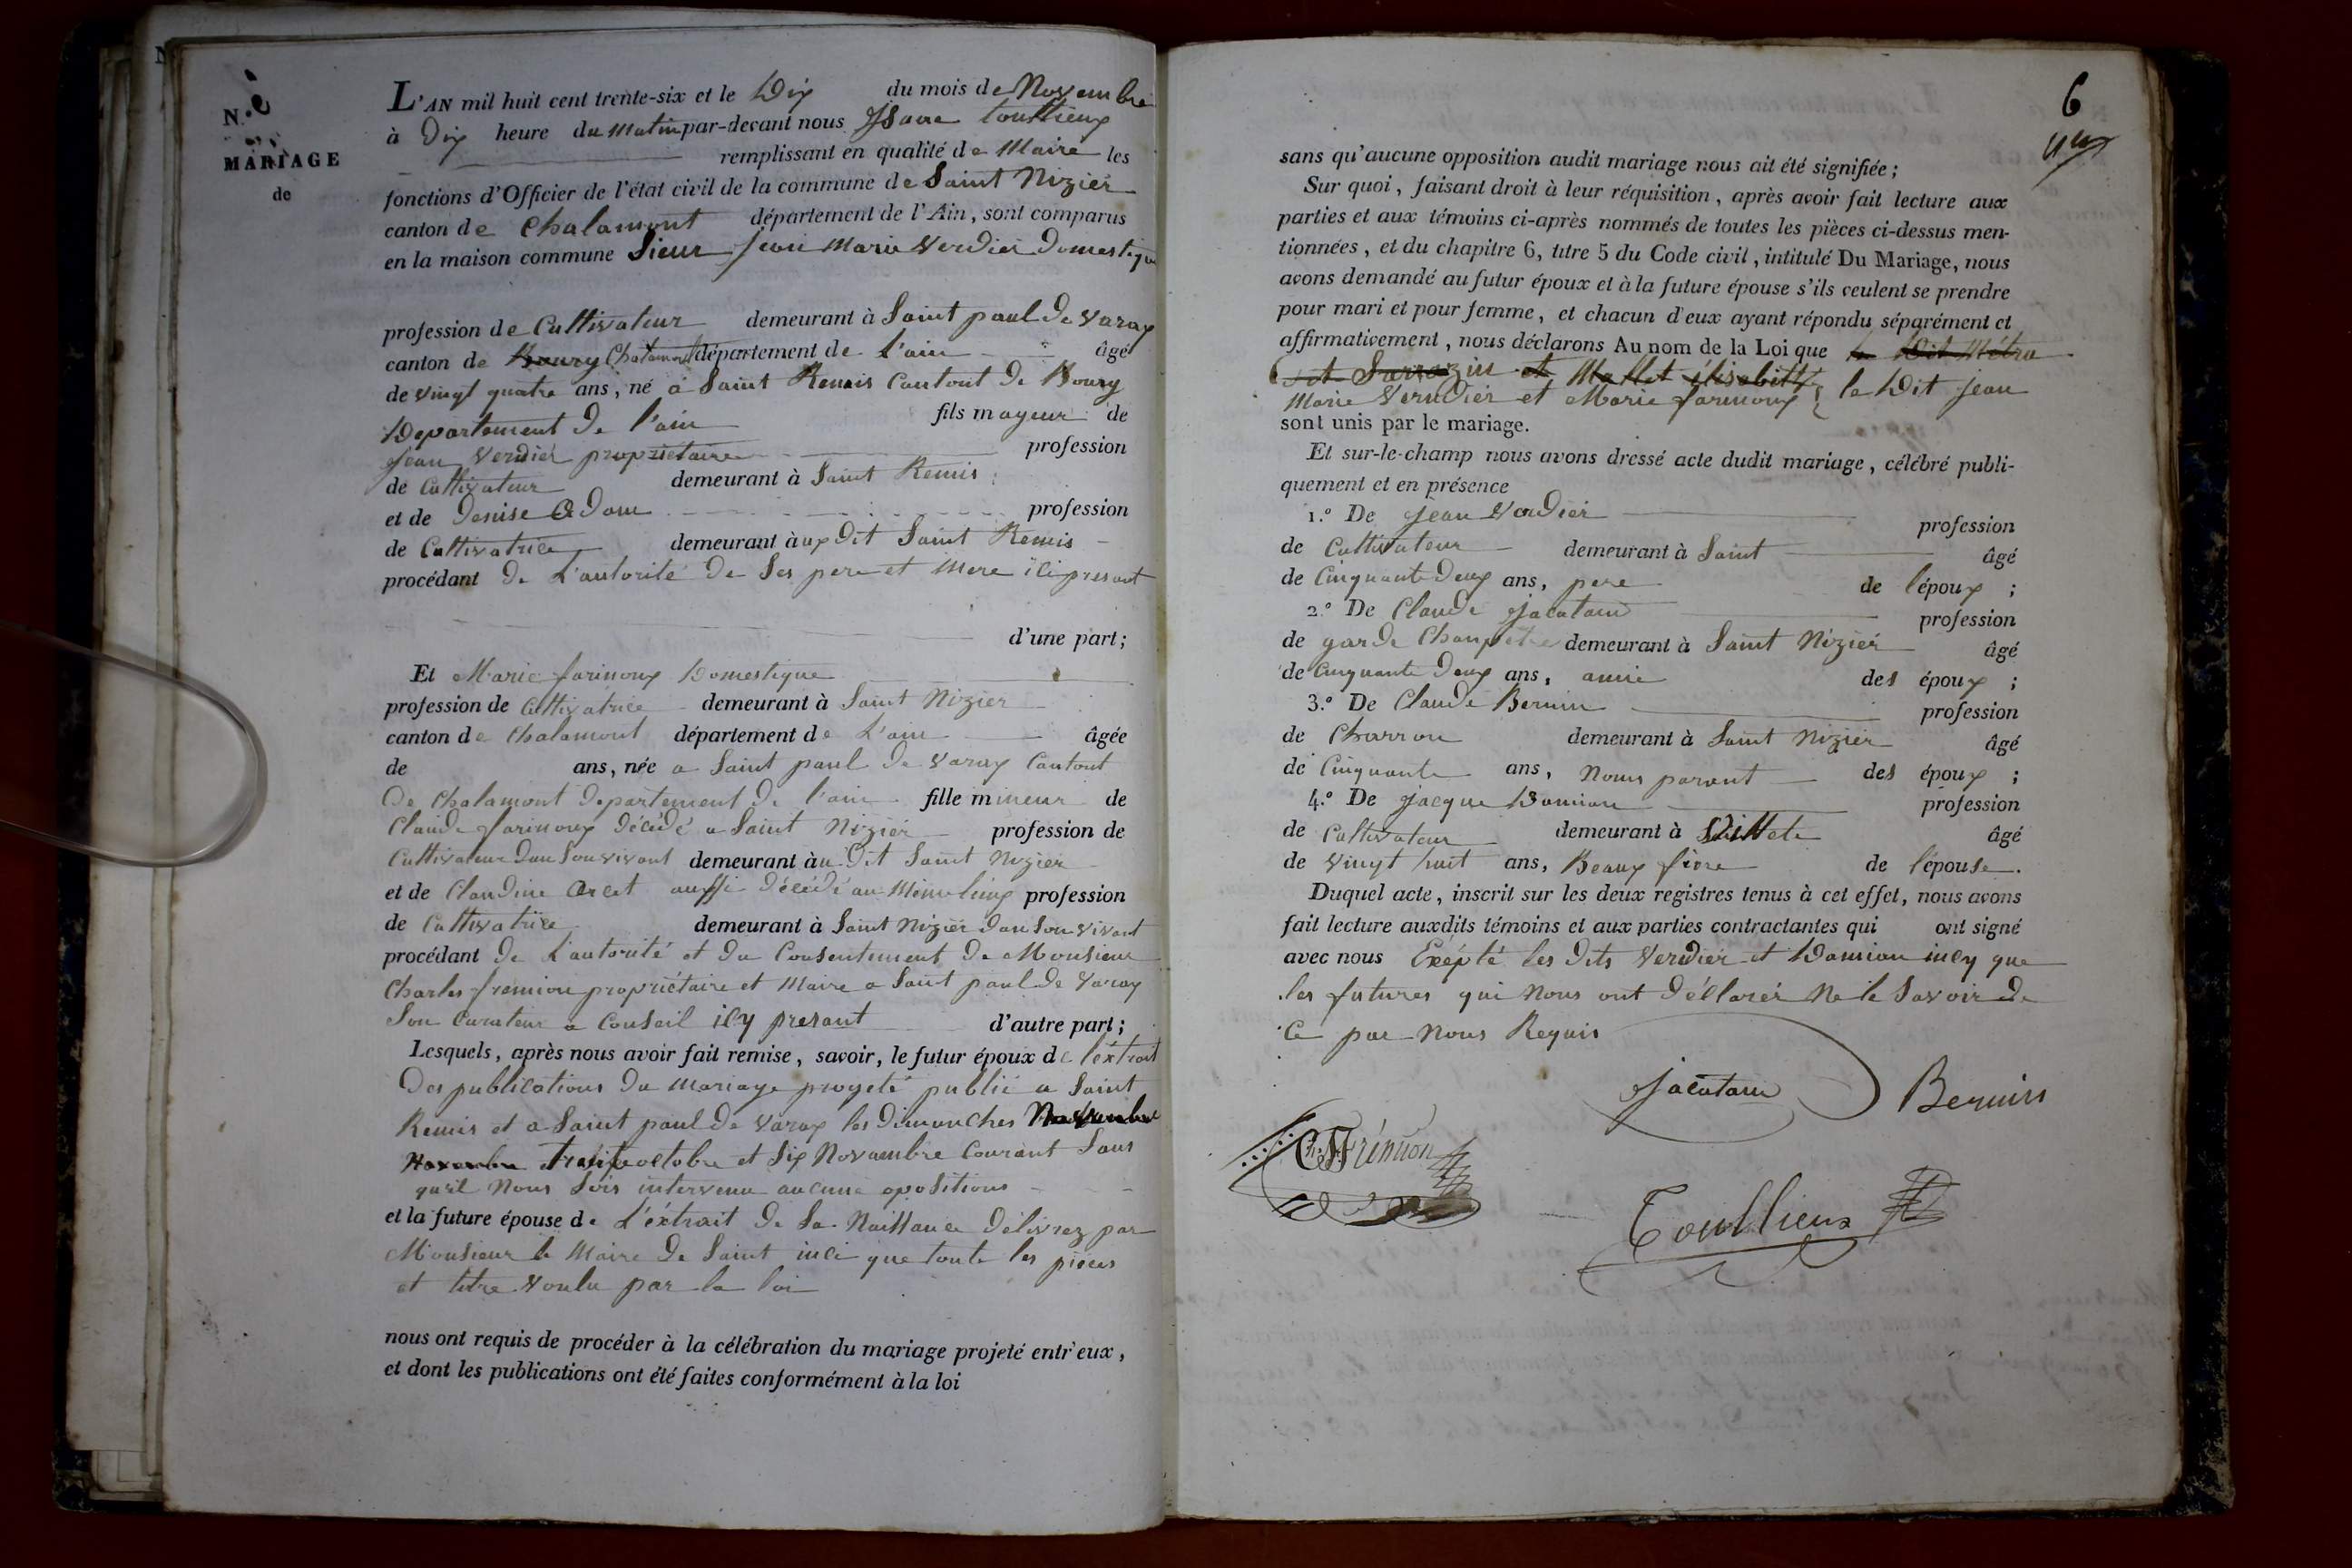 N.º
MARIAGE
de
L'AN mil huit cent trente-six et le Dix du mois de Novembre
à Dix heure du Matin par-devant nous toullieux
remplissant en qualité de Maire les
fonctions d'Officier de l'état civil de la commune de Saint Nizier
canton de Chalamont département de l'Ain, sont comparus
en la maison commune Sieur Jean Marie Verdier Domestique
profession de Cultivateur demeurant à Saint paul De Varax
canton de Bourg Chalamont département de L'ain âgé
de vingt quatre ans, né a Saint Remis Cantont De Bourg
Departement De l'ain fils mayeur de
Jean Verdier propriétaire profession
de Cultivateur demeurant à Saint Remis
et de Denise Adam profession
de Cultivatrice demeurant à ux Dit Saint Remis
procédant De L'autorité De Ses pere et Mere ici present
d'une part;
Et Marie farinoux Domestique
profession de Cultivatrice demeurant à Saint Nizier
canton de Chalamont département de L'ain âgée
de ans, née a Saint paul De Varax Cantont
De Chalamont Departement De l'ain fille mineur de
Claude farinoux Décédé a Saint Nizier profession de
Cultivateur Dans Son vivant demeurant à u Dit Saint Nizier
et de Claudine aussi Décédé au profession
de Cultivatrice demeurant à Saint Nizier Dan Son vivant
procédant De L'autorité et Du Consentement De Monsieur
Charles fremion propriétaire et Maire a Saint paul De Varax
Son Curateur a Conseil icy presant d'autre part;
Lesquels, après nous avoir fait remise, savoir, le futur époux de l'éxtrait
Des publications Du Mariage progeté publié a Saint
Remis et a Saint paul De Varax les Dimanches Novembre
Novembre trente octobre et Six Novambre Courant Sans
quil Nous Sois intervenu aucune opositions
et la future épouse de L'éxtrait De Sa Naissance Délivrez par
Monsieur le Maire De Saint inci que toute les pieces
et titre voulu par la loi
nous ont requis de procéder à la célébration du mariage projeté entr'eux,
et dont les publications ont été faites conformément à la loi
6
sans qu'aucune opposition audit mariage nous ait été signifiée;
Sur quoi, faisant droit à leur réquisition, après avoir fait lecture aux
parties et aux témoins ci-après nommés de toutes les pièces ci-dessus men-
tionnées, et du chapitre 6, titre 5 du Code civil, intitulé Du Mariage, nous
avons demandé au futur époux et à la future épouse s'ils veulent se prendre
pour mari et pour femme, et chacun d'eux ayant répondu séparément et
affirmativement, nous déclarons Au nom de la Loi que le Dit Métra
Sarrazin et Mallet élisabitt le Dit Jean
Marie Verdier et Marie farinoux
sont unis par le mariage.
Et sur-le-champ nous avons dressé acte dudit mariage, célébré publi-
quement et en présence
1.º De Jean Verdier profession
de Cultivateur demeurant à Saint âgé
de Cinquante Deux ans, pere de lépoux ;
2.º De Claude Jacatain profession
de garde Champetre demeurant à Saint Nizier âgé
de Cinquante Deux ans, amie des époux ;
3.º De Claude Bernin profession
de Charron demeurant à Saint Nizier âgé
de Cinquante ans, Nonn parant des époux ;
4.º De Jacque Damian profession
de Cultivateur demeurant à Villete âgé
de Vingt huit ans, Beaux frere de l'épouse.
Duquel acte, inscrit sur les deux registres tenus à cet effet, nous avons
fait lecture auxdits témoins et aux parties contractantes qui ont signé
avec nous Exépté les Dits Verdier et Damian incy que
les futures qui Nous ont Déclarér Ne le Savoir De
Ce par Nous Requis
Jacatain Bernin
Ch. Frémion
Toullieux